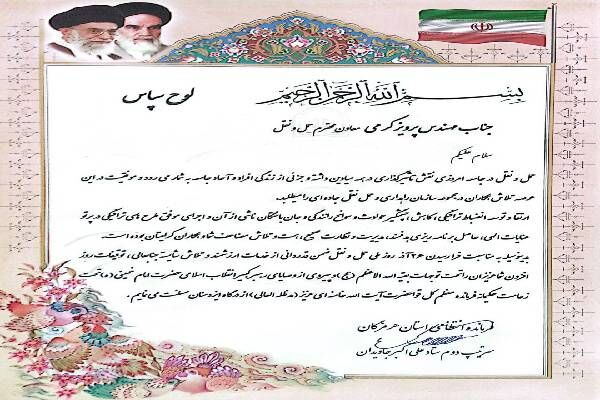 بسم الله الرحمن الرحیم
لوح سپاس
جناب مهندس پرویز کرمی معاون محترم حمل و نقل
سلام علیکم
حمل و نقل در جامعه امروزی نقش تاثیرگذاری در همه میادین داشته و جزئی از زندگی افراد و آحاد جامعه به شمار می رود و موفقیت در این
عرصه تلاش همکاران در مجموعه سازمان راهداری و حمل نقل جاده ای را می طلبد.
ارتقاء و توسعه انضباط ترافیکی، کاهش، پیشگیری حوادث و سوانح رانندگی و جان باختگان ناشی از آن و اجرای موفق طرح های ترافیکی در پرتو
عنایات الهی، حاصل برنامه ریزی هدفمند، مدیریت و نظارت صحیح، همت و تلاش مضاعف شما همکاران گرامیتان بوده است.
بدینوسیله به مناسبت فرارسیدن ۲۶ آذر روز ملی حمل و نقل ضمن قدردانی از خدمات ارزشمند و تلاش شایسته جنابعالی، توفیقات روز
افزون شما عزیزان را تحت توجهات بقیه الله الاعظم (عج) و پیروی از وصایای رهبر کبیر انقلاب اسلامی حضرت امام خمینی (ره) تحت
زعامت حکیمانه فرمانده معظم کل قوا حضرت آیت الله خامنه ای عزیز (مدظله العالی) از درگاه ایزد منان مسئلت می نمایم.
فرمانده انتظامی استان هرمزگان
سرتیپ دوم ستاد علی اکبر جاویدان